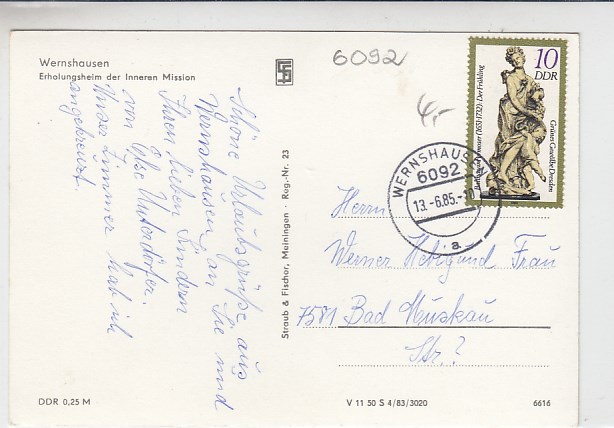 Wernshausen
Erholungsheim der Inneren Mission
Schöne Urlaubsgrüße aus
Wernshausen, an Sie und
Ihren lieben Kindern
von Ehe. Unterdörfer.
Unser Zimmer hab ich
angekreuzt.
Straub & Fischer, Meiningen · Reg.-Nr. 23
6092
4,-
10
DDR
(1651-1732): Der Frühling
Grünes Gewölbe Dresden
WERNSHAUSEN
6092
13.-6.85.-10
a
Herrn
Werner und Frau
7581 Bad Muskau
Str.?
DDR 0,25 M
V 11 50 S 4/83/3020
6616